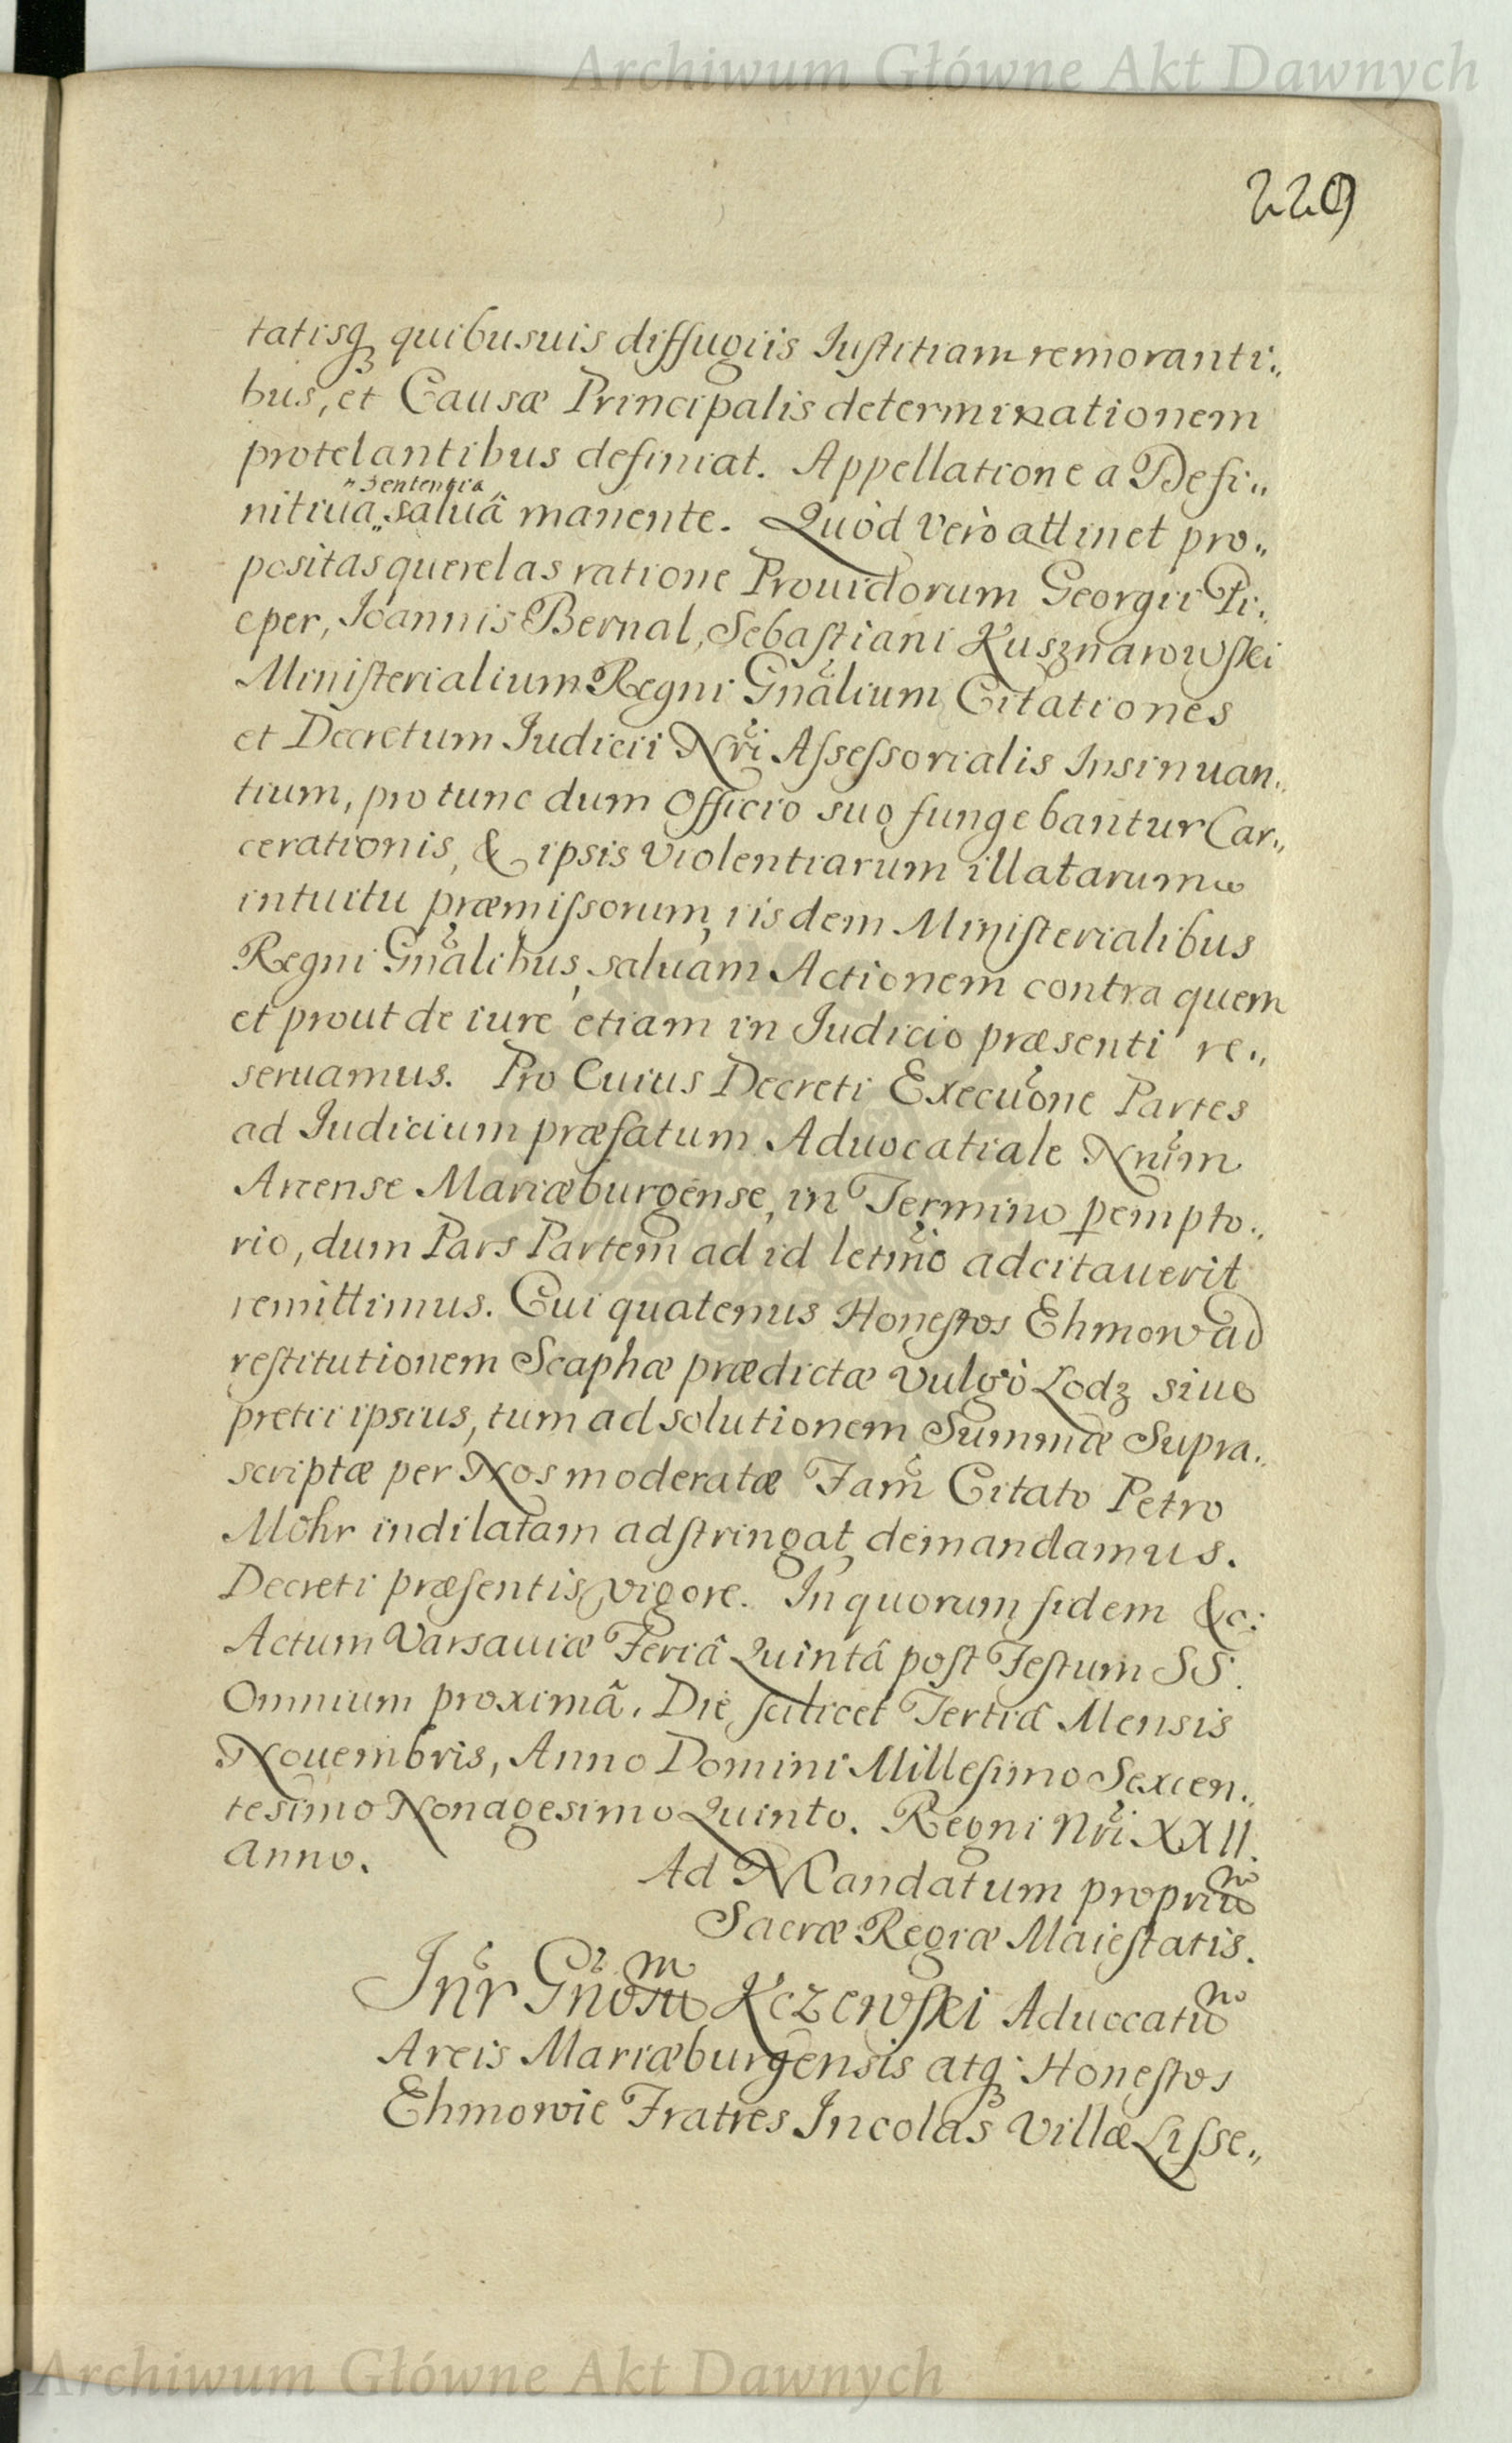 Archiwum Główne Akt Dawnych
229
tatisq₃ quibusuis diffugiis Iustitiam remoranti„
bus, et Causæ Principalis determinationem
protelantibus definiat. Appellatione a Defi„
„Sententia
nitiua„ saluâ manente. Quòd verò attinet pro„
positas querelas ratione Prouidorum Georgii Pi„
eper, Joannis Bernal, Sebastiani Kusznarowski
Ministerialium Regni Gnãlium Citationes
et Decretum Judicii Nri Assessorialis Insinuan„
tium, pro tunc dum Officio suo fungebantur Car„
cerationis, & ipsis violentiarum illatarum
intuitu præmissorum, iisdem Ministerialibus
Regni Gnãlibus, saluam Actionem contra quem
et prout de iure etiam in Judicio præsenti re„
seruamus. Pro Cuius Decreti Execuõne Partes
ad Judicium præfatum Aduocatiale Nrũm
Arcense Mariæburgense, in Termino pempto„
rio, dum Pars Partem ad id letimò adcitauerit
remittimus. Cui quatenus Honestos Ehmow ad
restitutionem Scaphæ prædictæ vulgò Lodz siue
pretii ipsius, tum ad solutionem Summæ Supra„
scriptæ per Nos moderatæ Fam̃ Citato Petro
Möhr indilatam adstringat, demandamus.
Decreti præsentis vigore. In quorum fidem &c:
Actum Varsauiæ Feriâ Quintâ post Festum SS.
Omnium proximâ. Die scilicet Tertiâ Mensis
Nouembris, Anno Domini Millesimo Sexcen„
tesimo Nonagesimo Quinto. Regni Nri XXII.
Anno.
Ad Mandatum propriũ
Sacræ Regiæ Maiestatis.
Inr̃ Gñosũ Kczewski Aduocatũ
Arcis Mariæburgensis atq₃ Honestos
Ehmowie Fratres Incolas Villæ Lisse„
Archiwum Główne Akt Dawnych